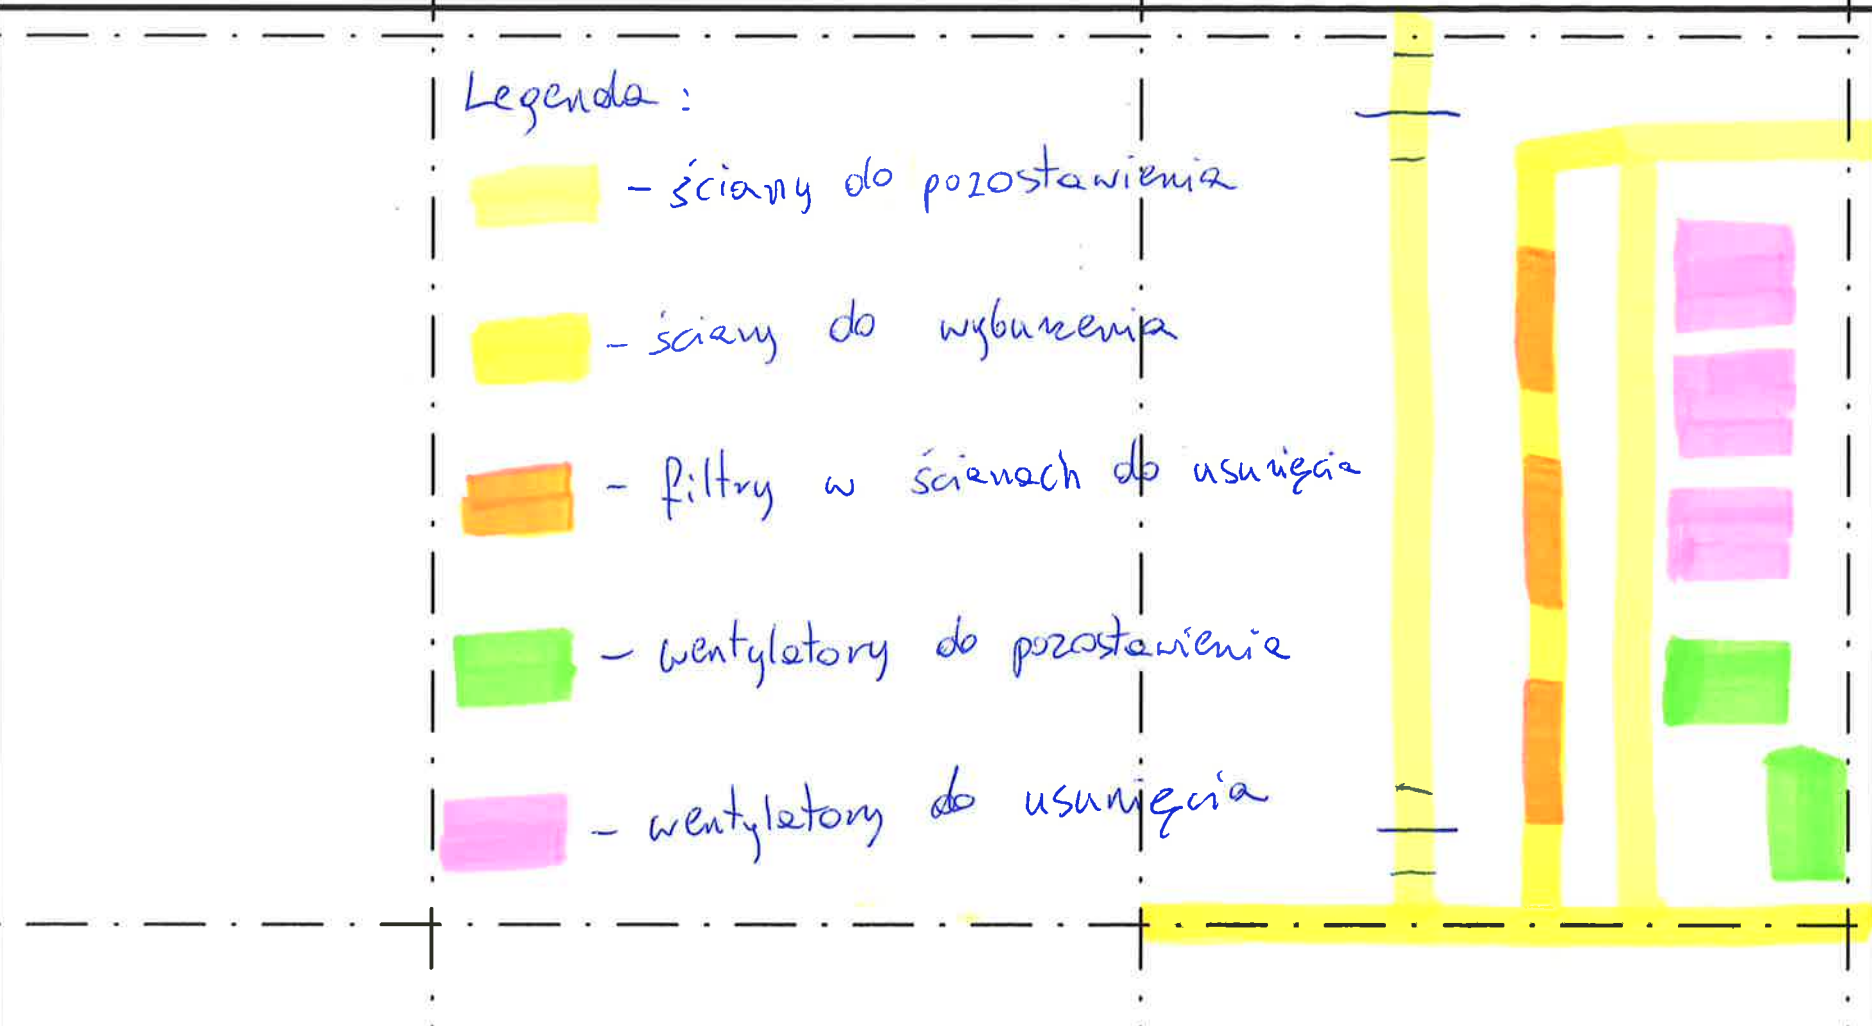 Legenda :
- ściany do pozostawienia
- ściany do wyburzenia
- filtry w ścianach do usunięcia
- wentylatory do pozostawienia
- wentylatory do usunięcia